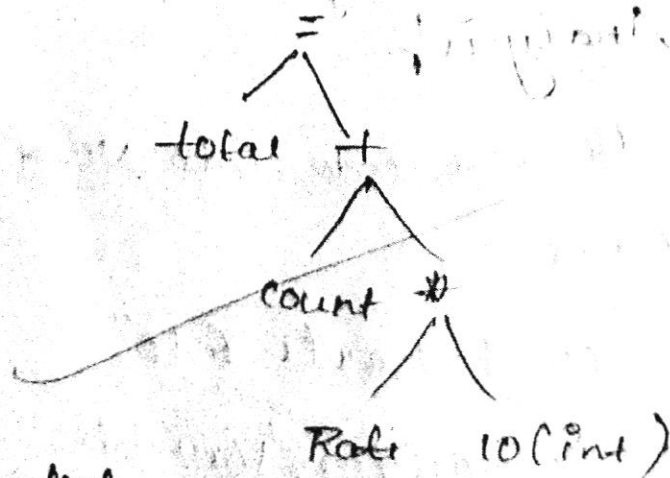 =
total +
count *
Rate 10(int)